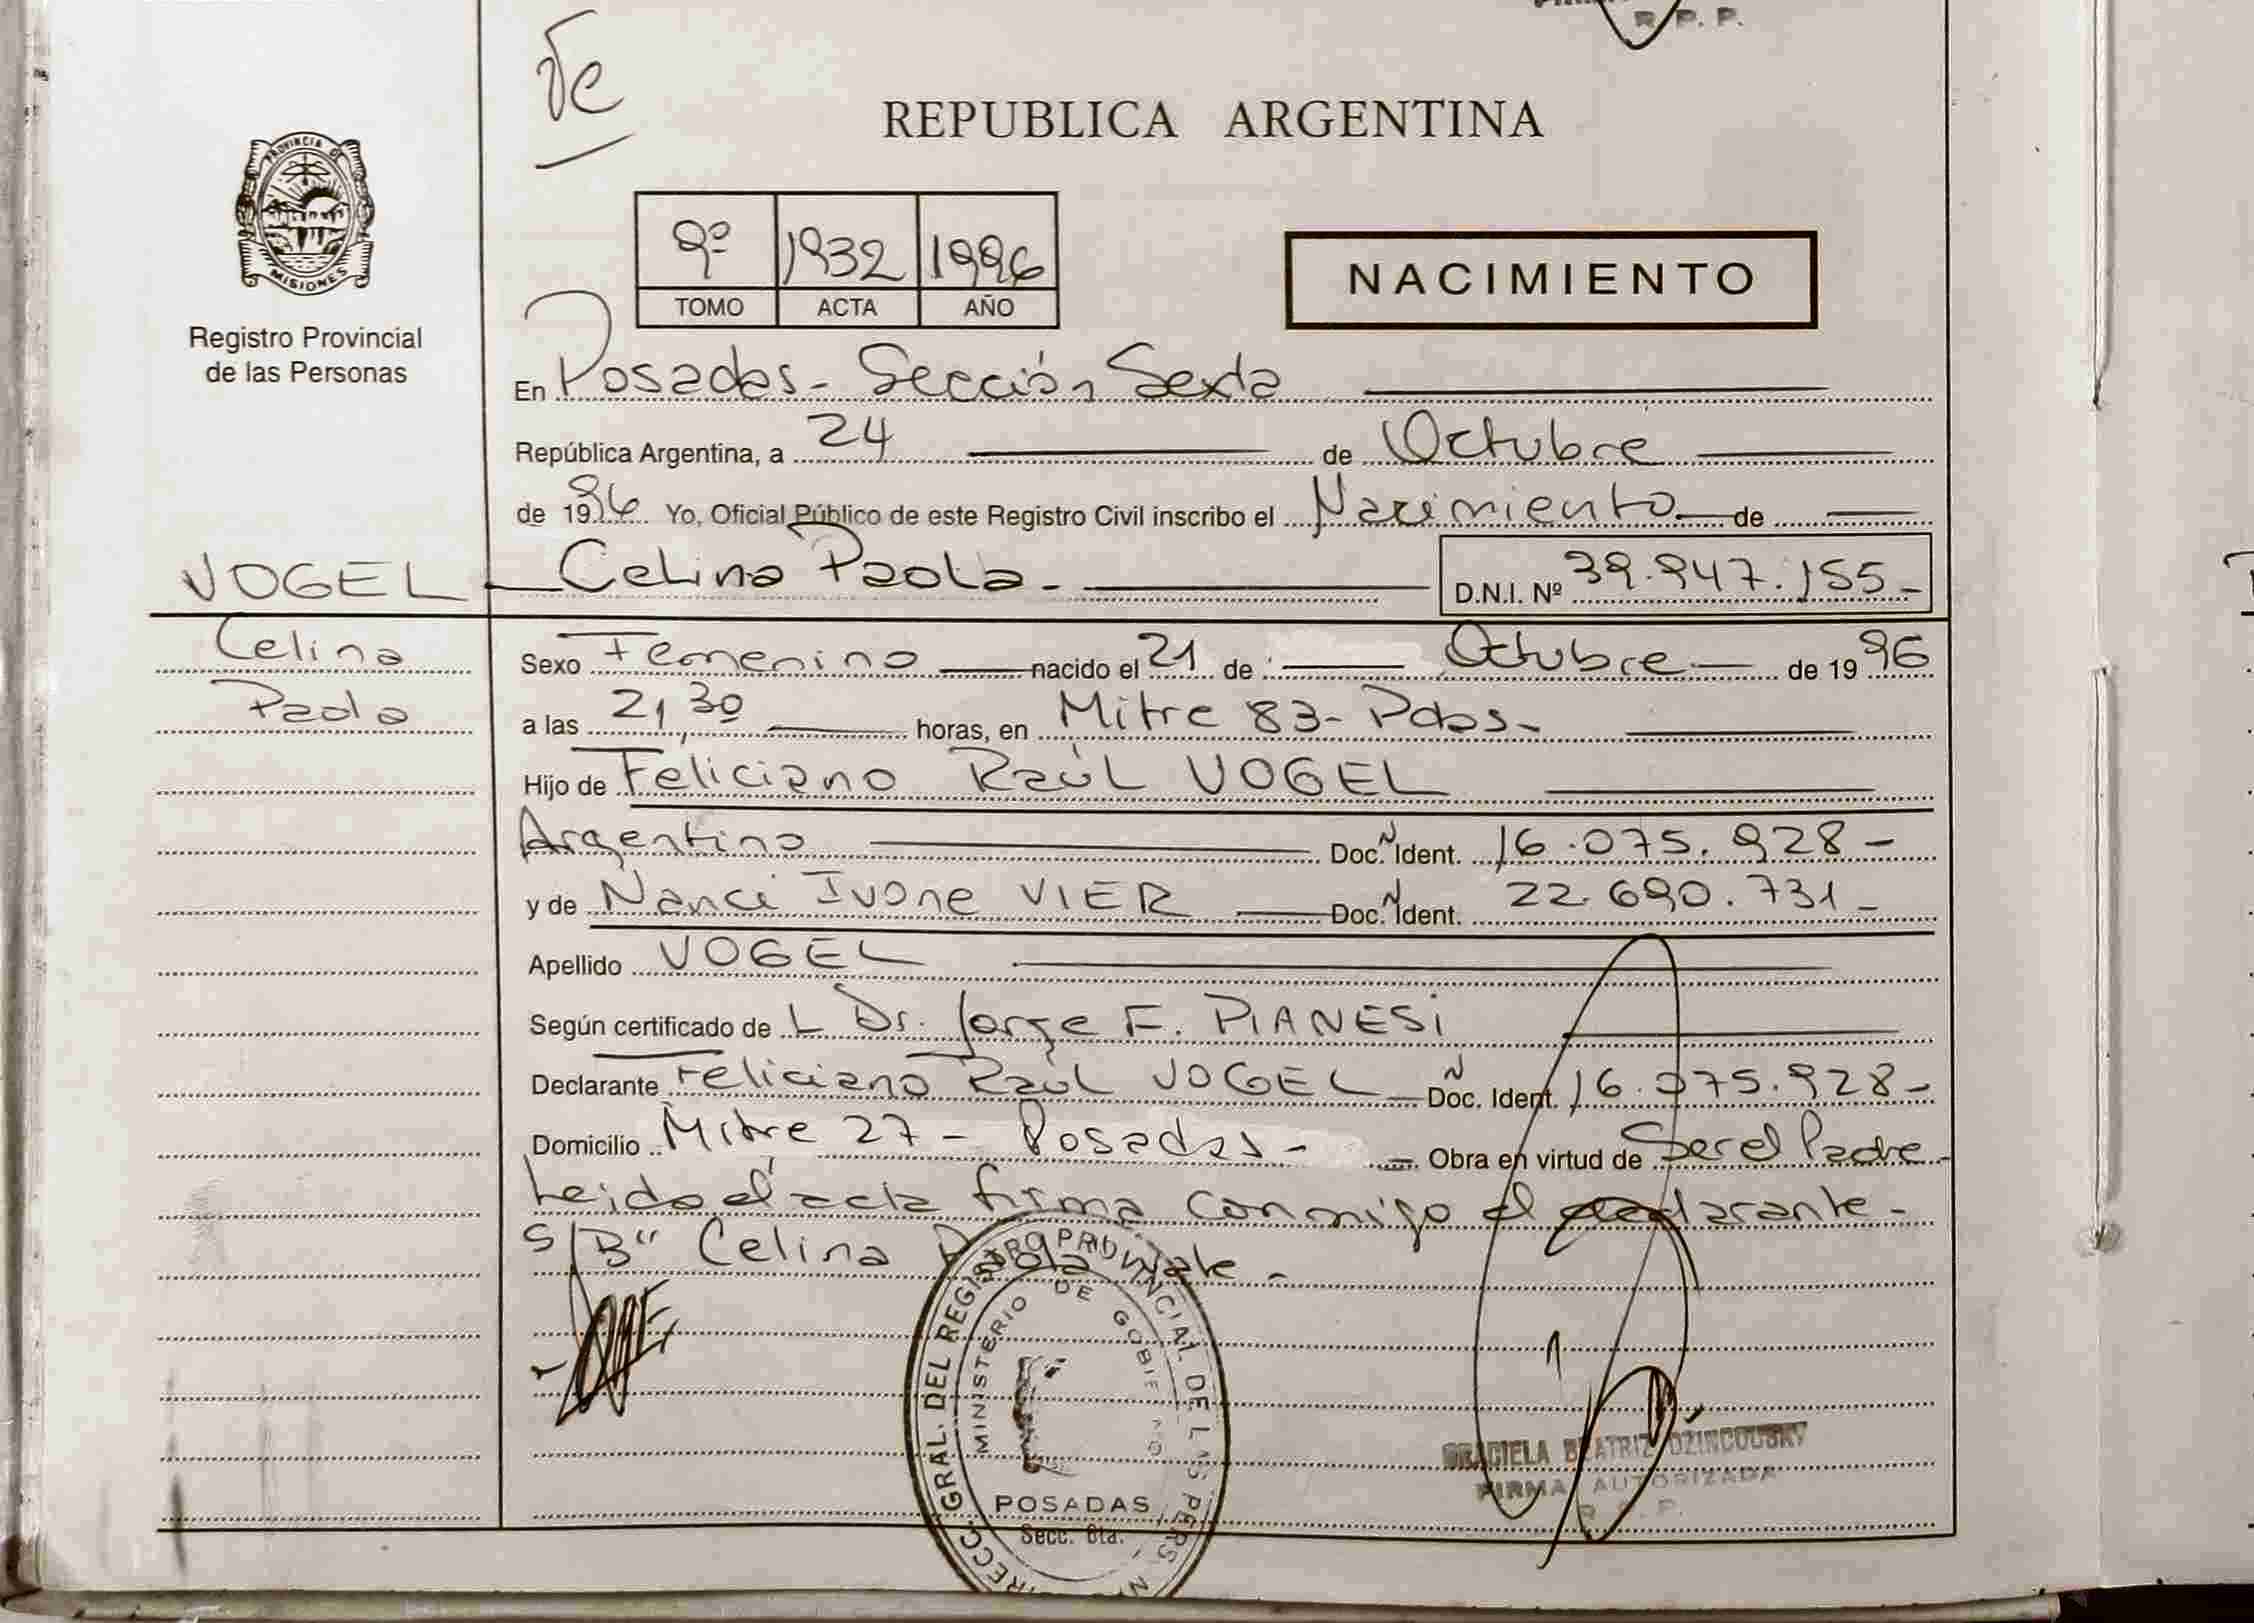 R. P. P.
REPUBLICA ARGENTINA
PROVINCIA DE
MISIONES
Registro Provincial
de las Personas
9º 1932 1996
TOMO ACTA AÑO
NACIMIENTO
En Posadas - Sección Sexta
República Argentina, a 24 de Octubre
de 1996 Yo, Oficial Público de este Registro Civil inscribo el Nacimiento de
VOGEL - Celina Paola - D.N.I. Nº 39.947.155-
Celina
Paola
Sexo Femenino nacido el 21 de Octubre de 1996
a las 21,30 horas, en Mitre 83 - Pdas -
Hijo de Feliciano Raúl VOGEL
Argentino Doc. Ident. 16.075.928-
y de Nanci Ivone VIER Doc. Ident. 22.690.731-
Apellido VOGEL
Según certificado de L Dr. Jorge F. PIANESi
Declarante Feliciano Raúl VOGEL Doc. Ident. 16.075.928-
Domicilio Mitre 27 - Posadas - Obra en virtud de Ser el Padre -
Leido el acta firma conmigo el declarante -
S/B" Celina Paola Vale -
DIRECC. GRAL. DEL REGISTRO PROVINCIAL DE LAS PERS
MINISTERIO DE GOBIERNO
POSADAS
Secc. 6ta.
GRACIELA BEATRIZ DZINCOUSKY
FIRMA AUTORIZADA
R. P. P.